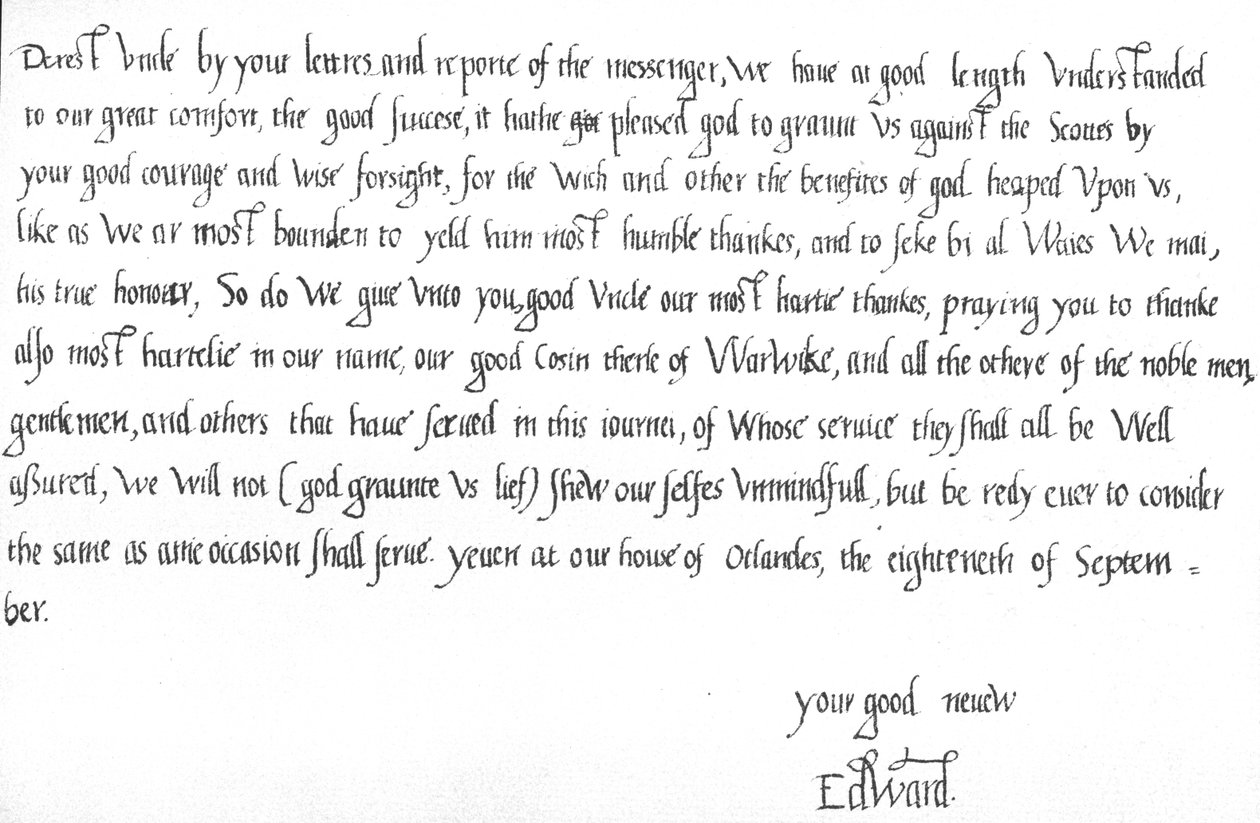 Derest Vncle by your lettres and reporte of the messenger, we haue at good length Vnderstanded
to our great comfort, the good succese, it hathe pleased god to graunt Vs against the Scottes by
your good courage and wise forsight, for the wich and other the benefites of god heaped Vpon vs,
like as We ar most bounden to yeld him most humble thankes, and to seke bi al Waies We mai,
his true honour, So do We giue Vnto you, good Vncle our most hartie thankes, praying you to thanke
also most hartelie in our name, our good Cosin therle of Warwike, and all the othere of the noble men,
gentlemen, and others that haue serued in this iournei, of Whose seruice they shall all be Well
aßured, We Will not (god graunte Vs lief) shew our selfes Vnmindfull, but be redy euer to consider
the same as anie occasion shall serue. yeuen at our house of Otlandes, the eighteneth of Septem =
ber.
your good neuew
Edward.